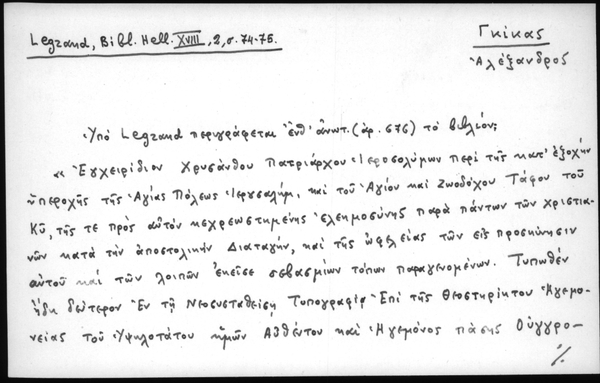 Legrand, Bibl. Hell. XVIII, 2, σ. 74-75.
Γκίκας
Ἀλέξανδρος
Ὑπὸ Legrand περιγράφεται ἔνθ' ἀνωτ. (ἀρ. 676) τὸ βιβλίον:
« Ἐγχειρίδιον Χρυσάνθου Πατριάρχου Ἱεροσολύμων περὶ τῆς κατ' ἐξοχὴν
ὑπεροχῆς τῆς Ἁγίας Πόλεως Ἱερουσαλήμ, καὶ τοῦ Ἁγίου καὶ Ζωοδόχου Τάφου τοῦ
Κῦ, τῆς τε πρὸς αὐτὸν κεχρεωστημένης ἐλεημοσύνης παρὰ πάντων τῶν χριστια-
νῶν κατὰ τὴν ἀποστολικὴν Διαταγήν, καὶ τῆς ὠφελείας τῶν εἰς προσκύνησιν
αὐτοῦ καὶ τῶν λοιπῶν ἐκεῖσε σεβασμίων τόπων παραγενομένων. Τυπωθὲν
ἤδη δεύτερον Ἐν τῇ Νεοσυσταθείσῃ Τυπογραφίᾳ Ἐπὶ τῆς Θεοστηρίκτου Ἡγεμο-
νείας τοῦ Ὑψηλοτάτου ἡμῶν Αὐθέντου καὶ Ἡγεμόνος πάσης Οὐγγρο-
./.